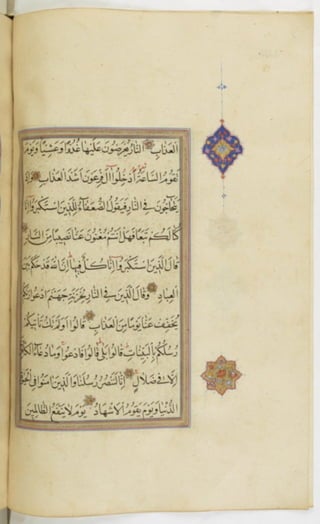 العَذَابِ النَّارُ يُعْرَضُونَ عَلَيْهَا غُدُوًّا وَعَشِيًّا وَيَوْمَ
تَقُومُ السَّاعَةُ أَدْخِلُوا آلَ فِرْعَوْنَ أَشَدَّ العَذَابِ وَإِذْ
يَتَحَاجُّونَ فِي النَّارِ فَيَقُولُ الضُّعَفَاءُ لِلَّذِينَ اسْتَكْبَرُوا إِنَّا
كُنَّا لَكُمْ تَبَعًا فَهَلْ أَنْتُمْ مُغْنُونَ عَنَّا نَصِيبًا مِنَ النَّارِ
قَالَ الَّذِينَ اسْتَكْبَرُوا إِنَّا كُلٌّ فِيهَا إِنَّ اللهَ قَدْ حَكَمَ بَيْنَ
العِبَادِ وَقَالَ الَّذِينَ فِي النَّارِ لِخَزَنَةِ جَهَنَّمَ ادْعُوا رَبَّكُمْ
يُخَفِّفْ عَنَّا يَوْمًا مِنَ العَذَابِ قَالُوا أَوَلَمْ تَكُ تَأْتِيكُمْ
رُسُلُكُمْ بِالبَيِّنَاتِ قَالُوا بَلَى قَالُوا فَادْعُوا وَمَا دُعَاءُ الكَافِرِينَ
إِلَّا فِي ضَلَالٍ إِنَّا لَنَنْصُرُ رُسُلَنَا وَالَّذِينَ آمَنُوا فِي الحَيَاةِ
الدُّنْيَا وَيَوْمَ يَقُومُ الأَشْهَادُ يَوْمَ لَا يَنْفَعُ الظَّالِمِينَ